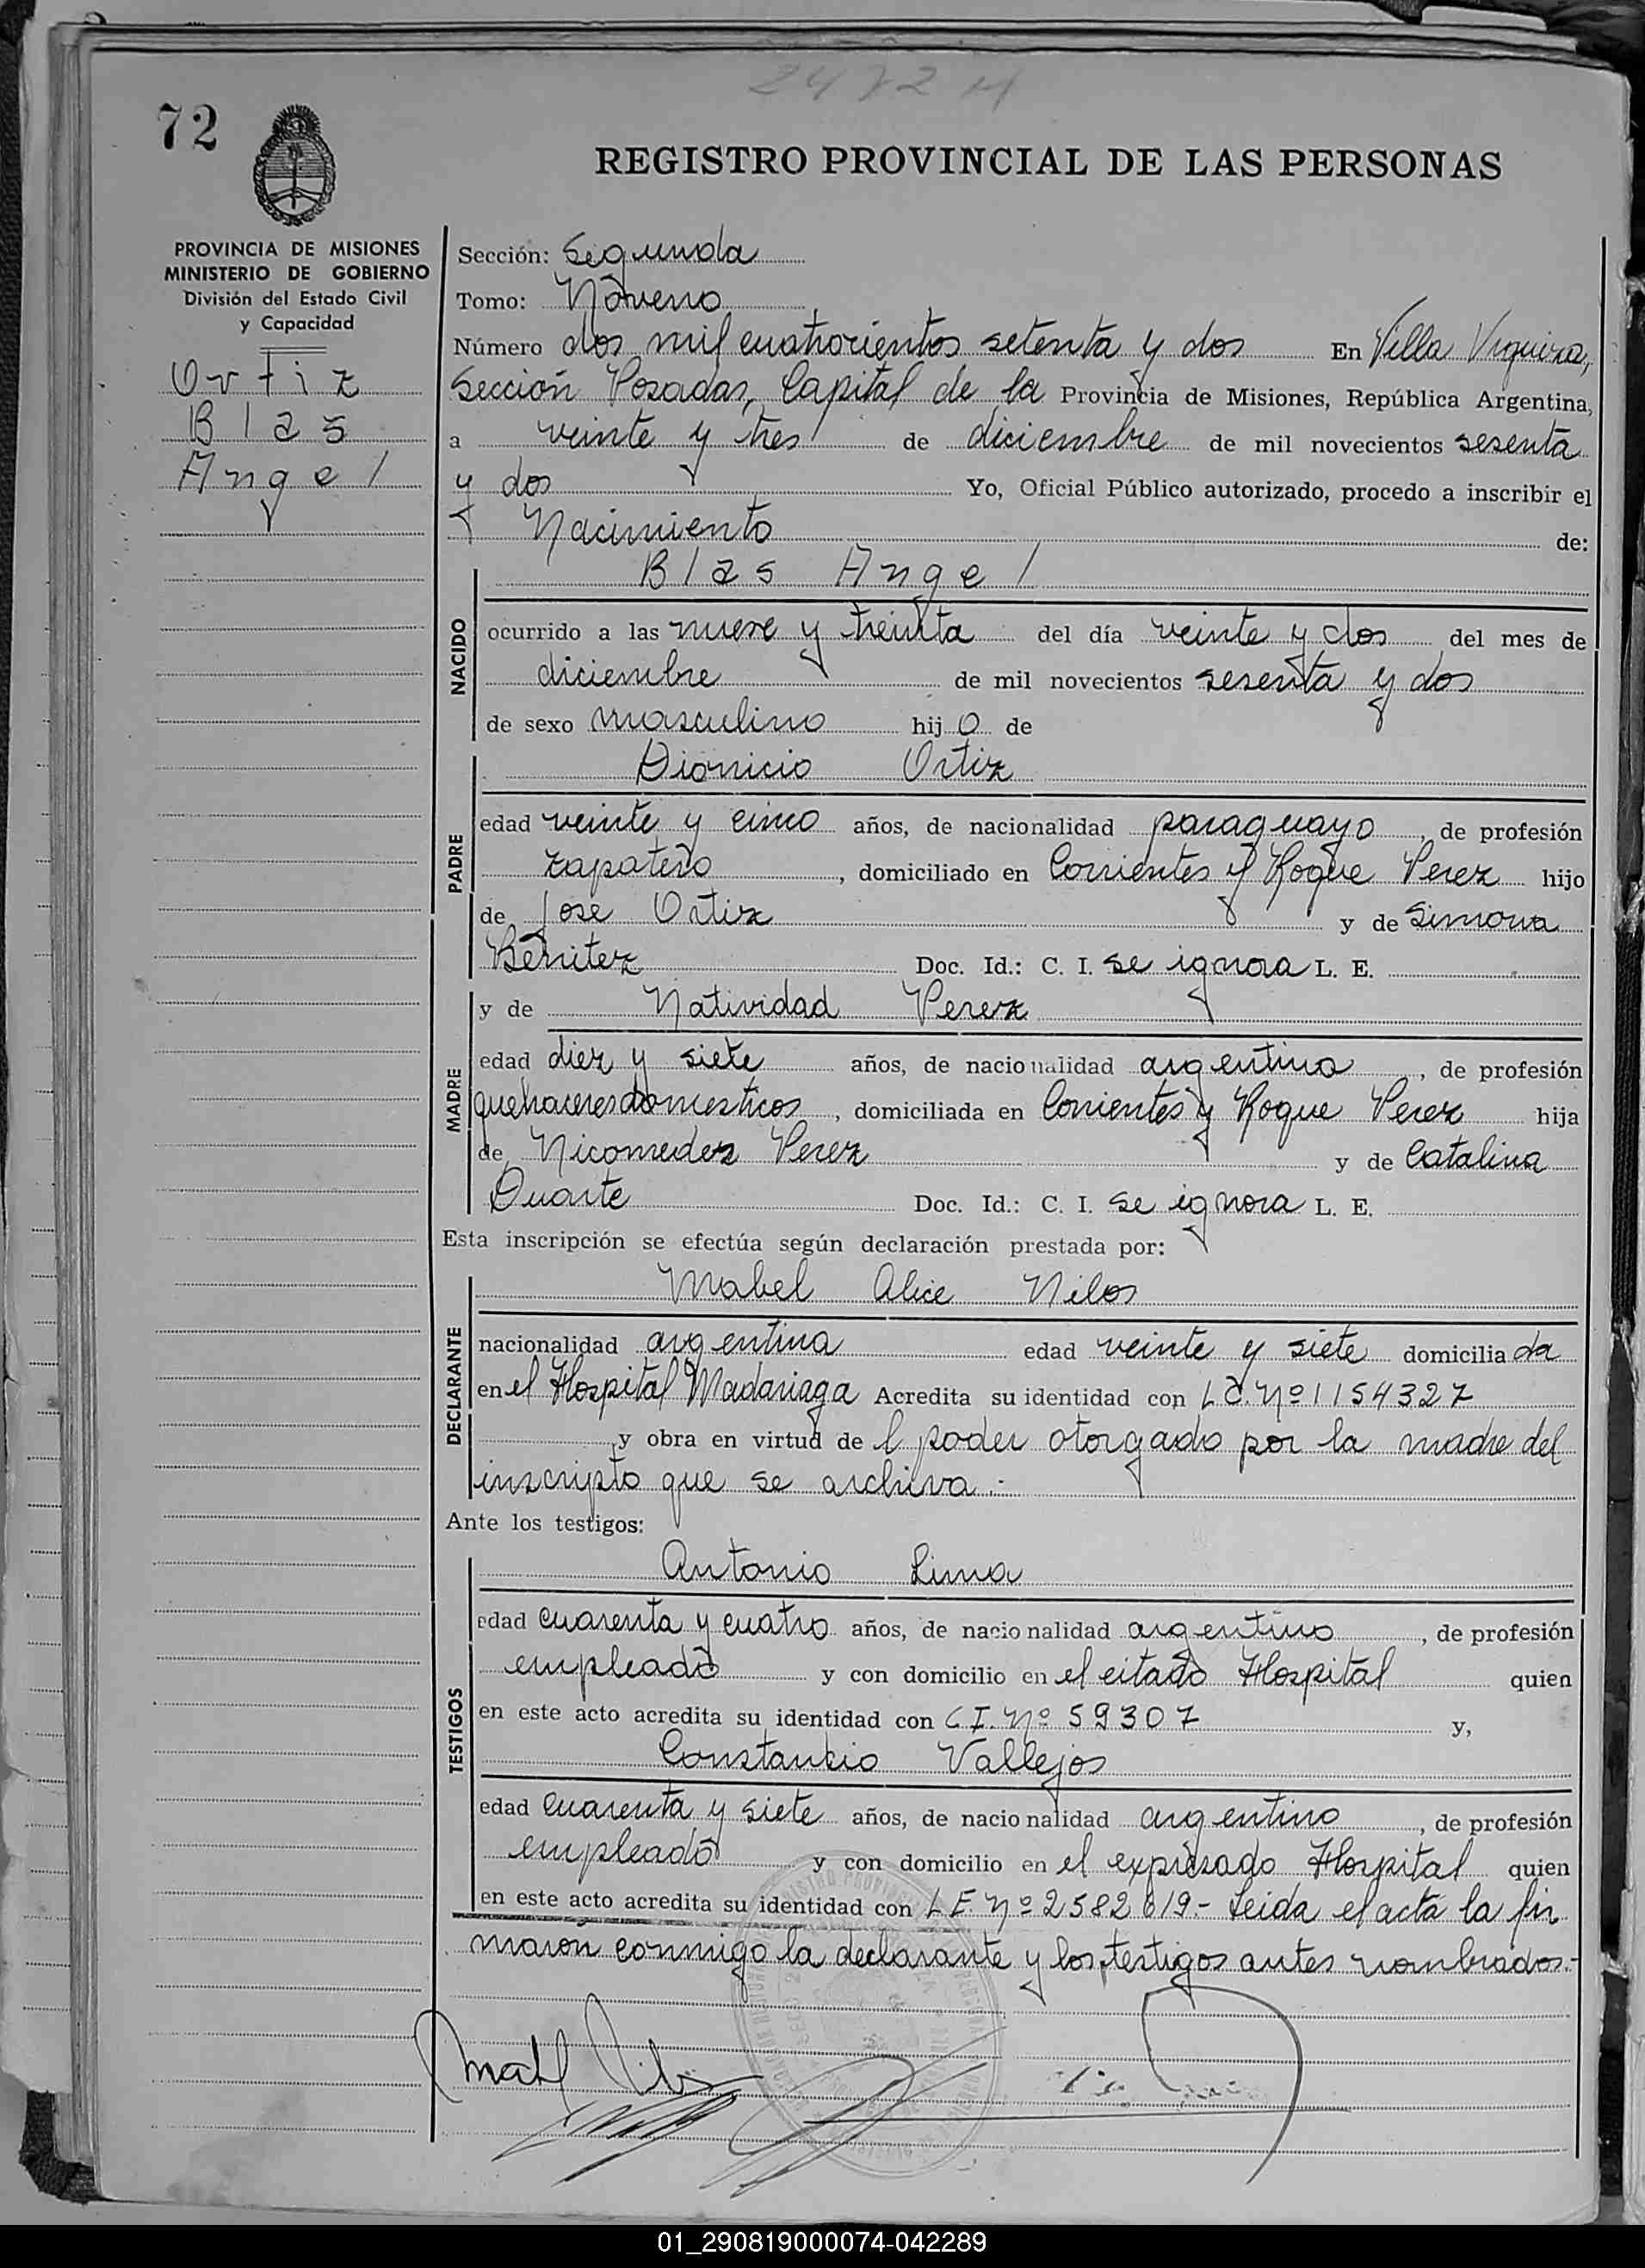 2472 M
72
REGISTRO PROVINCIAL DE LAS PERSONAS
PROVINCIA DE MISIONES
MINISTERIO DE GOBIERNO
División del Estado Civil
y Capacidad
Ortiz
Blas
Angel
Sección: Segunda
Tomo: Noveno
Número dos mil cuatrocientos setenta y dos En Villa Urquiza,
Sección Posadas, Capital de la Provincia de Misiones, República Argentina,
a veinte y tres de diciembre de mil novecientos sesenta
y dos Yo, Oficial Público autorizado, procedo a inscribir el
Nacimiento de:
Blas Angel
NACIDO
ocurrido a las nueve y treinta del día veinte y dos del mes de
diciembre de mil novecientos sesenta y dos
de sexo masculino hijo de
Dionicio Ortiz
PADRE
edad veinte y cinco años, de nacionalidad paraguayo, de profesión
zapatero, domiciliado en Corrientes y Roque Perez hijo
de Jose Ortiz y de Simona
Benitez Doc. Id.: C. I. se ignora L. E.
y de Natividad Perez
MADRE
edad diez y siete años, de nacionalidad argentina, de profesión
quehaceres domesticos, domiciliada en Corrientes y Roque Perez hija
de Nicomedez Perez y de Catalina
Duarte Doc. Id.: C. I. se ignora L. E.
Esta inscripción se efectúa según declaración prestada por:
Mabel Alice Nilos
DECLARANTE
nacionalidad argentina edad veinte y siete domiciliada
en el Hospital Madariaga Acredita su identidad con L.C. Nº 1154327
y obra en virtud del poder otorgado por la madre del
inscripto que se archiva.-
Ante los testigos:
Antonio Lima
TESTIGOS
edad cuarenta y cuatro años, de nacionalidad argentino, de profesión
empleado y con domicilio en el citado Hospital quien
en este acto acredita su identidad con C.I. Nº 59307 y,
Constancio Vallejos
edad cuarenta y siete años, de nacionalidad argentino, de profesión
empleado y con domicilio en el expresado Hospital quien
en este acto acredita su identidad con L.E. Nº 2582619.- Leida el acta la fir
maron conmigo la declarante y los testigos antes nombrados.-
01_290819000074-042289